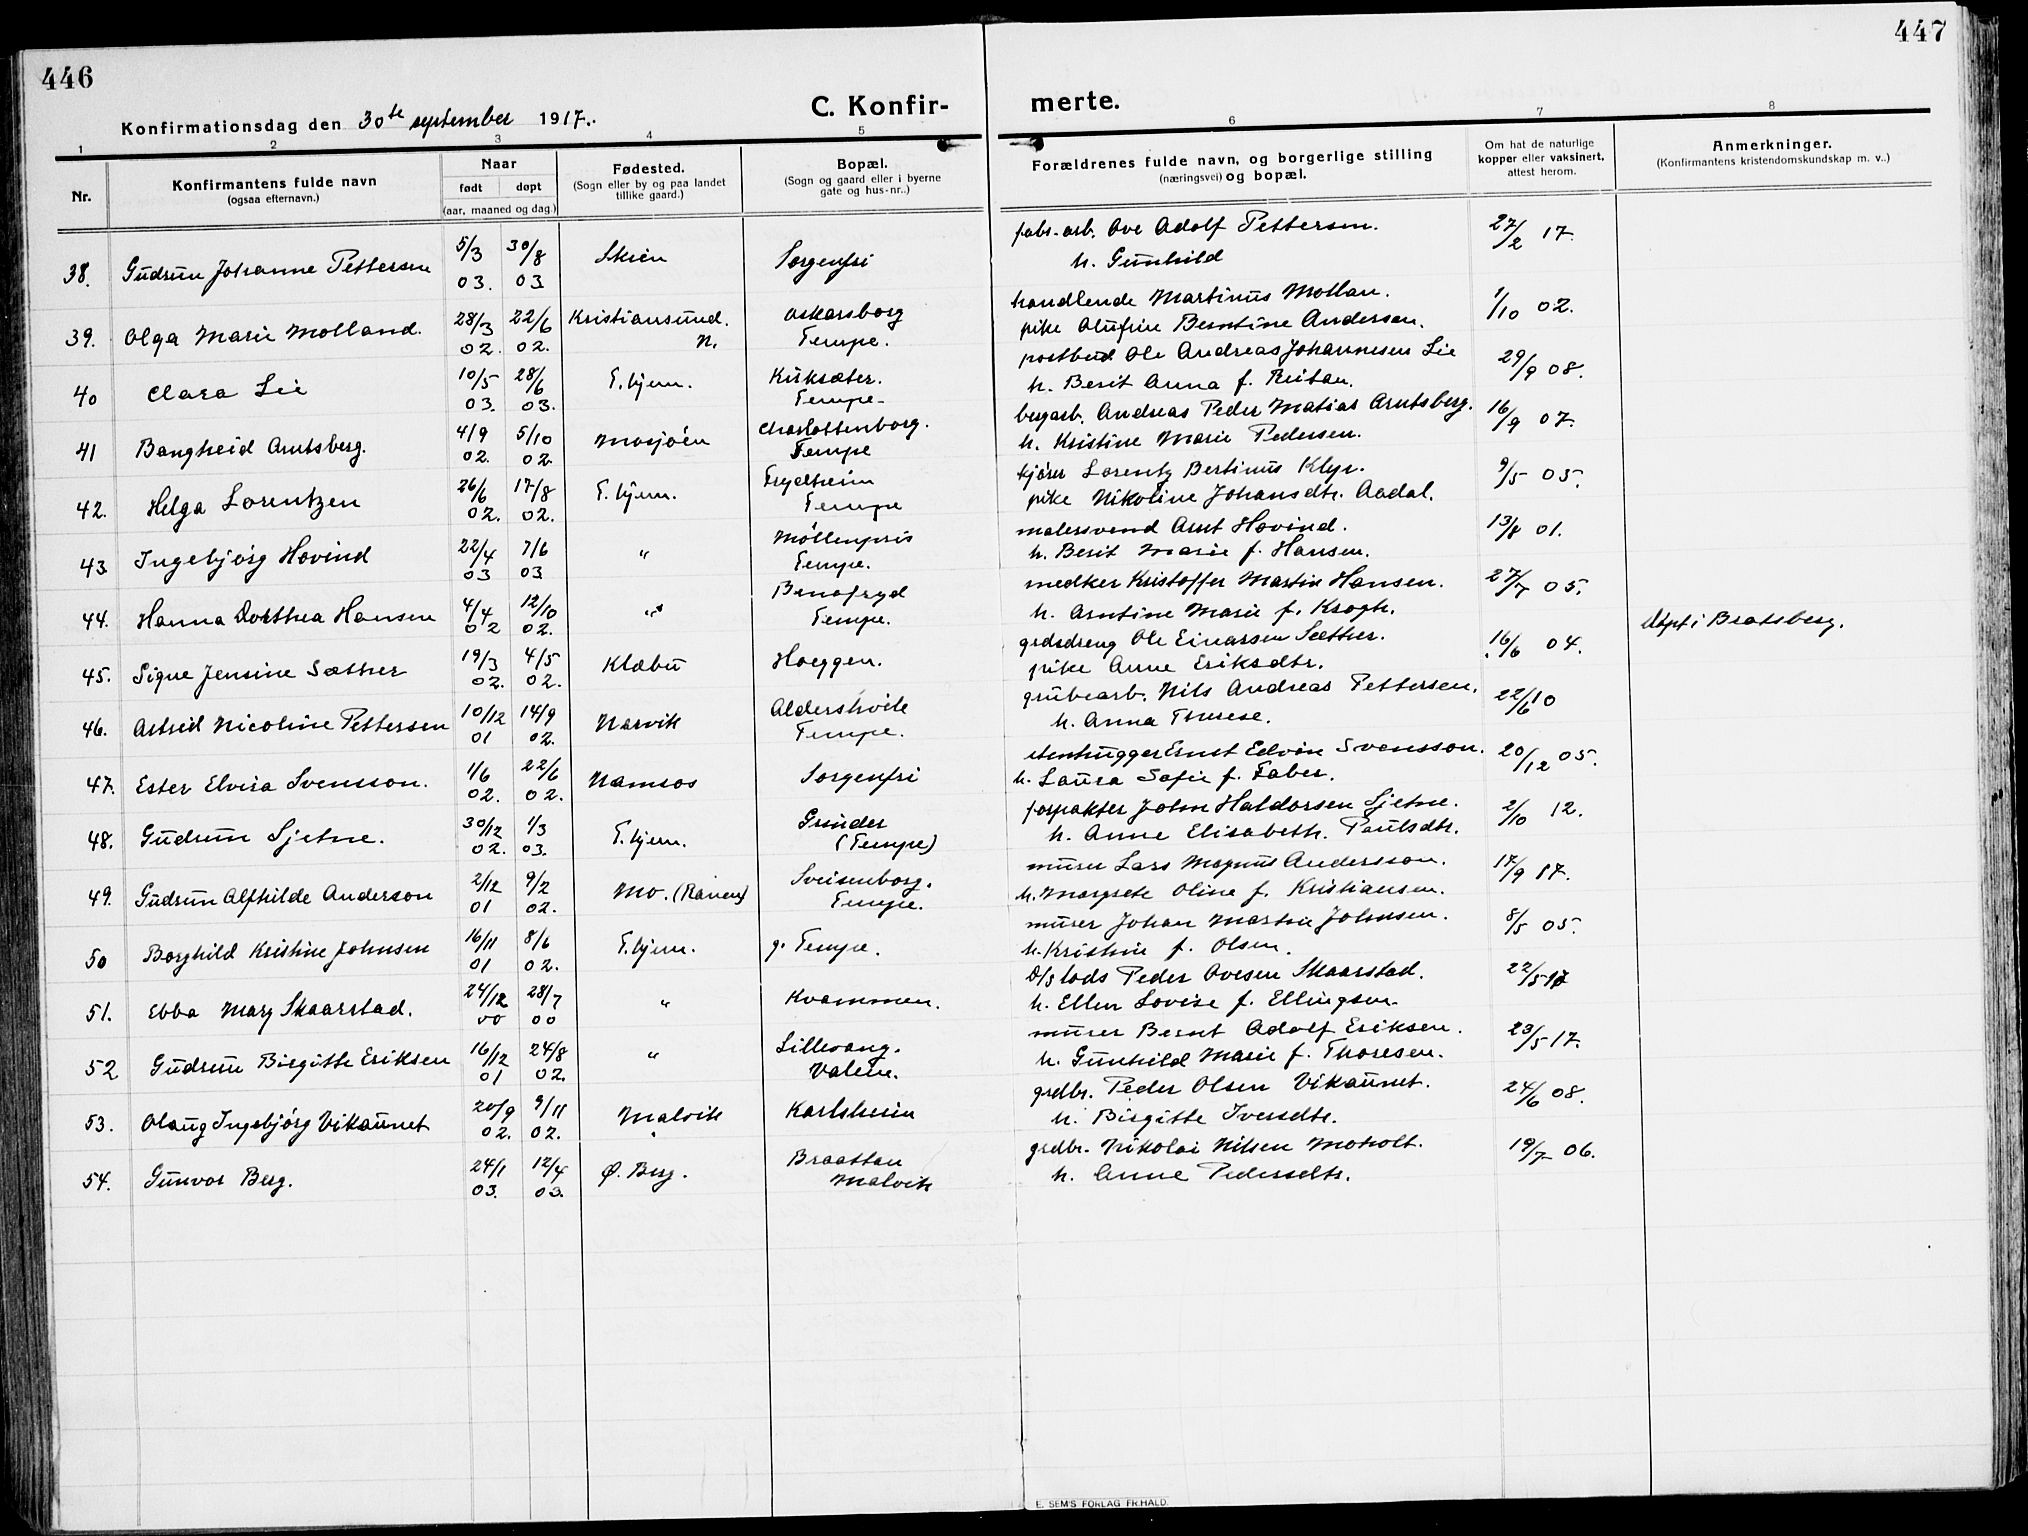 446
447
C. Konfir-
merte.
Konfirmationsdag den 30te september 1917.
1 2 3 4 5 6 7 8
Nr.
Konfirmantens fulde navn
(ogsaa efternavn.)
Naar
født døpt
(aar, maaned og dag.)
Fødested.
(Sogn eller by og paa landet
tillike gaard.)
Bopæl.
(Sogn og gaard eller i byerne
gate og hus-nr..)
Forældrenes fulde navn, og borgerlige stilling
(næringsvei) og bopæl.
Om hat de naturlige
kopper eller vaksinert,
attest herom.
Anmerkninger.
(Konfirmantens kristendomskundskap m. v..)
5/3 30/8 fabr.arb. Ove Adolf Pettersen. 27/2 17.
38. Gudrun Johanne Pettersen 03. 03 Skien Sorgenfri h. Gunhild
28/3 22/6 Kristiansund. Oskarsborg handlende Martinus Mollan. 1/10 02.
39. Olga Marie Molland. 02. 02. N. Tempe. pike Olufine Berntine Andersen.
10/5 28/6 T.hjem. Kuksæter. postbud Ole Andreas Johannesen Lie 29/9 08.
40 Clara Lie 03. 03. Tempe. h. Berit Anna f. Reitan.
4/9 5/10 Mosjøen Charlottenborg. bergarb. Andreas Peder Matias Arntsberg. 16/9 07.
41 Borgheid Arntsberg. 02. 02. Tempe h. Kristine Marie Pedersen.
26/6 17/8 T.hjem. Frydheim kjører Lorentz Bertinus Klyx. 9/5 05.
42. Helga Lorentzen 02. 02. Tempe pike Nikoline Johansdtr. Aadal.
22/4 7/6 " Möllenpris malersvend Arnt Hovind. 13/8 01.
43 Ingebjørg Hovind 03 03 Tempe. h. Berit Marie f. Hansen.
4/4 12/10 " Benofryd snedker Kristoffer Martin Hansen. 27/7 05.
44. Hanna Dorthea Hansen 02 02. Tempe. h. Arntine Marie f. Krogh. døpt i Bratsberg.
19/3 4/5 Klæbu Hoeggen. grdsdreng Ole Einarsen Sæther. 16/6 04.
45. Signe Jensine Sæther 02. 02. pike Anne Eriksdtr.
10/12 14/9 Narvik Aldershvile grubearb. Nils Andreas Pettersen. 22/6 10
46. Astrid Nicoline Pettersen 01 02. Tempe. h. Anna Therese.
1/6 22/6 Namsos Sorgenfri stenhugger Ernst Edvin Svensson. 20/12 05.
47. Ester Elvira Svensson. 02. 02. h. Laura Sofie f. Faber.
30/12 1/3 T.hjem. Grinder forpakter John Haldorsen Sjetne. 2/10 12.
48. Gudrun Sjetne. 02. 03. (Tempe) h. Anne Elisabeth. Paulsdtr.
2/12 9/2 Mo. (Ranen) Sveisenborg. murer Lars Magnus Andersson. 17/9 17.
49. Gudrun Alfhilde Anderson 01 02. Tempe. h. Margrete Oline f. Kristiansen.
16/11 8/6 T.hjem. g. Tempe. murer Johan Martin Johnsen. 8/5 05.
50 Borghild Kristine Johnsen 01 02. h. Kristine f. Olsen.
24/12 28/7 " Kvammen. D/s lods Peder Ovesen Skaarstad. 22/5 17
51. Ebba Mary Skaarstad. 00 00 h. Ellen Lovise f. Ellingsen.
16/12 24/8 " Lillevang. murer Bernt Adolf Eriksen. 23/5 17.
52 Gudrun Birgitte Eriksen 01 02. Valene. h. Gunhild Marie f. Thoresen.
20/9 9/11 Malvik Karlsheim grdbr. Peder Olsen Vikaunet. 24/6 08.
53. Olaug Ingebjørg Vikaunet 02. 02. h. Birgitte Iversdtr.
24/1 12/4 Ø. Berg. Braattan grdbr. Nikolai Nilsen Moholt. 19/7 06.
54. Gunvor Berg. 03. 03. Malvik h. Anne Pedersdtr.
E. SEM'S FORLAG FR.HALD.